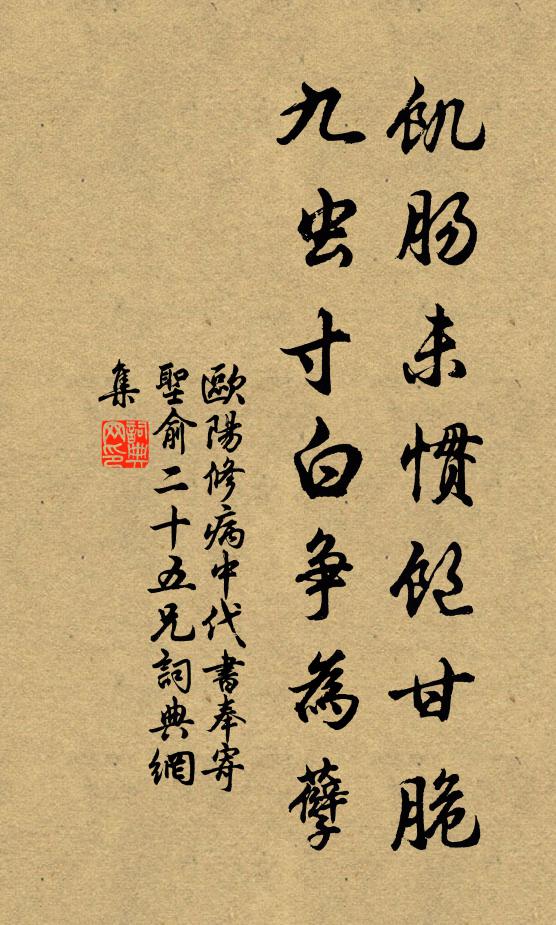 飢腸未慣飽甘脆
九虫寸白争為孽
歐陽修病中代書奉寄
聖俞二十五兄詞典網
集
詞典網印